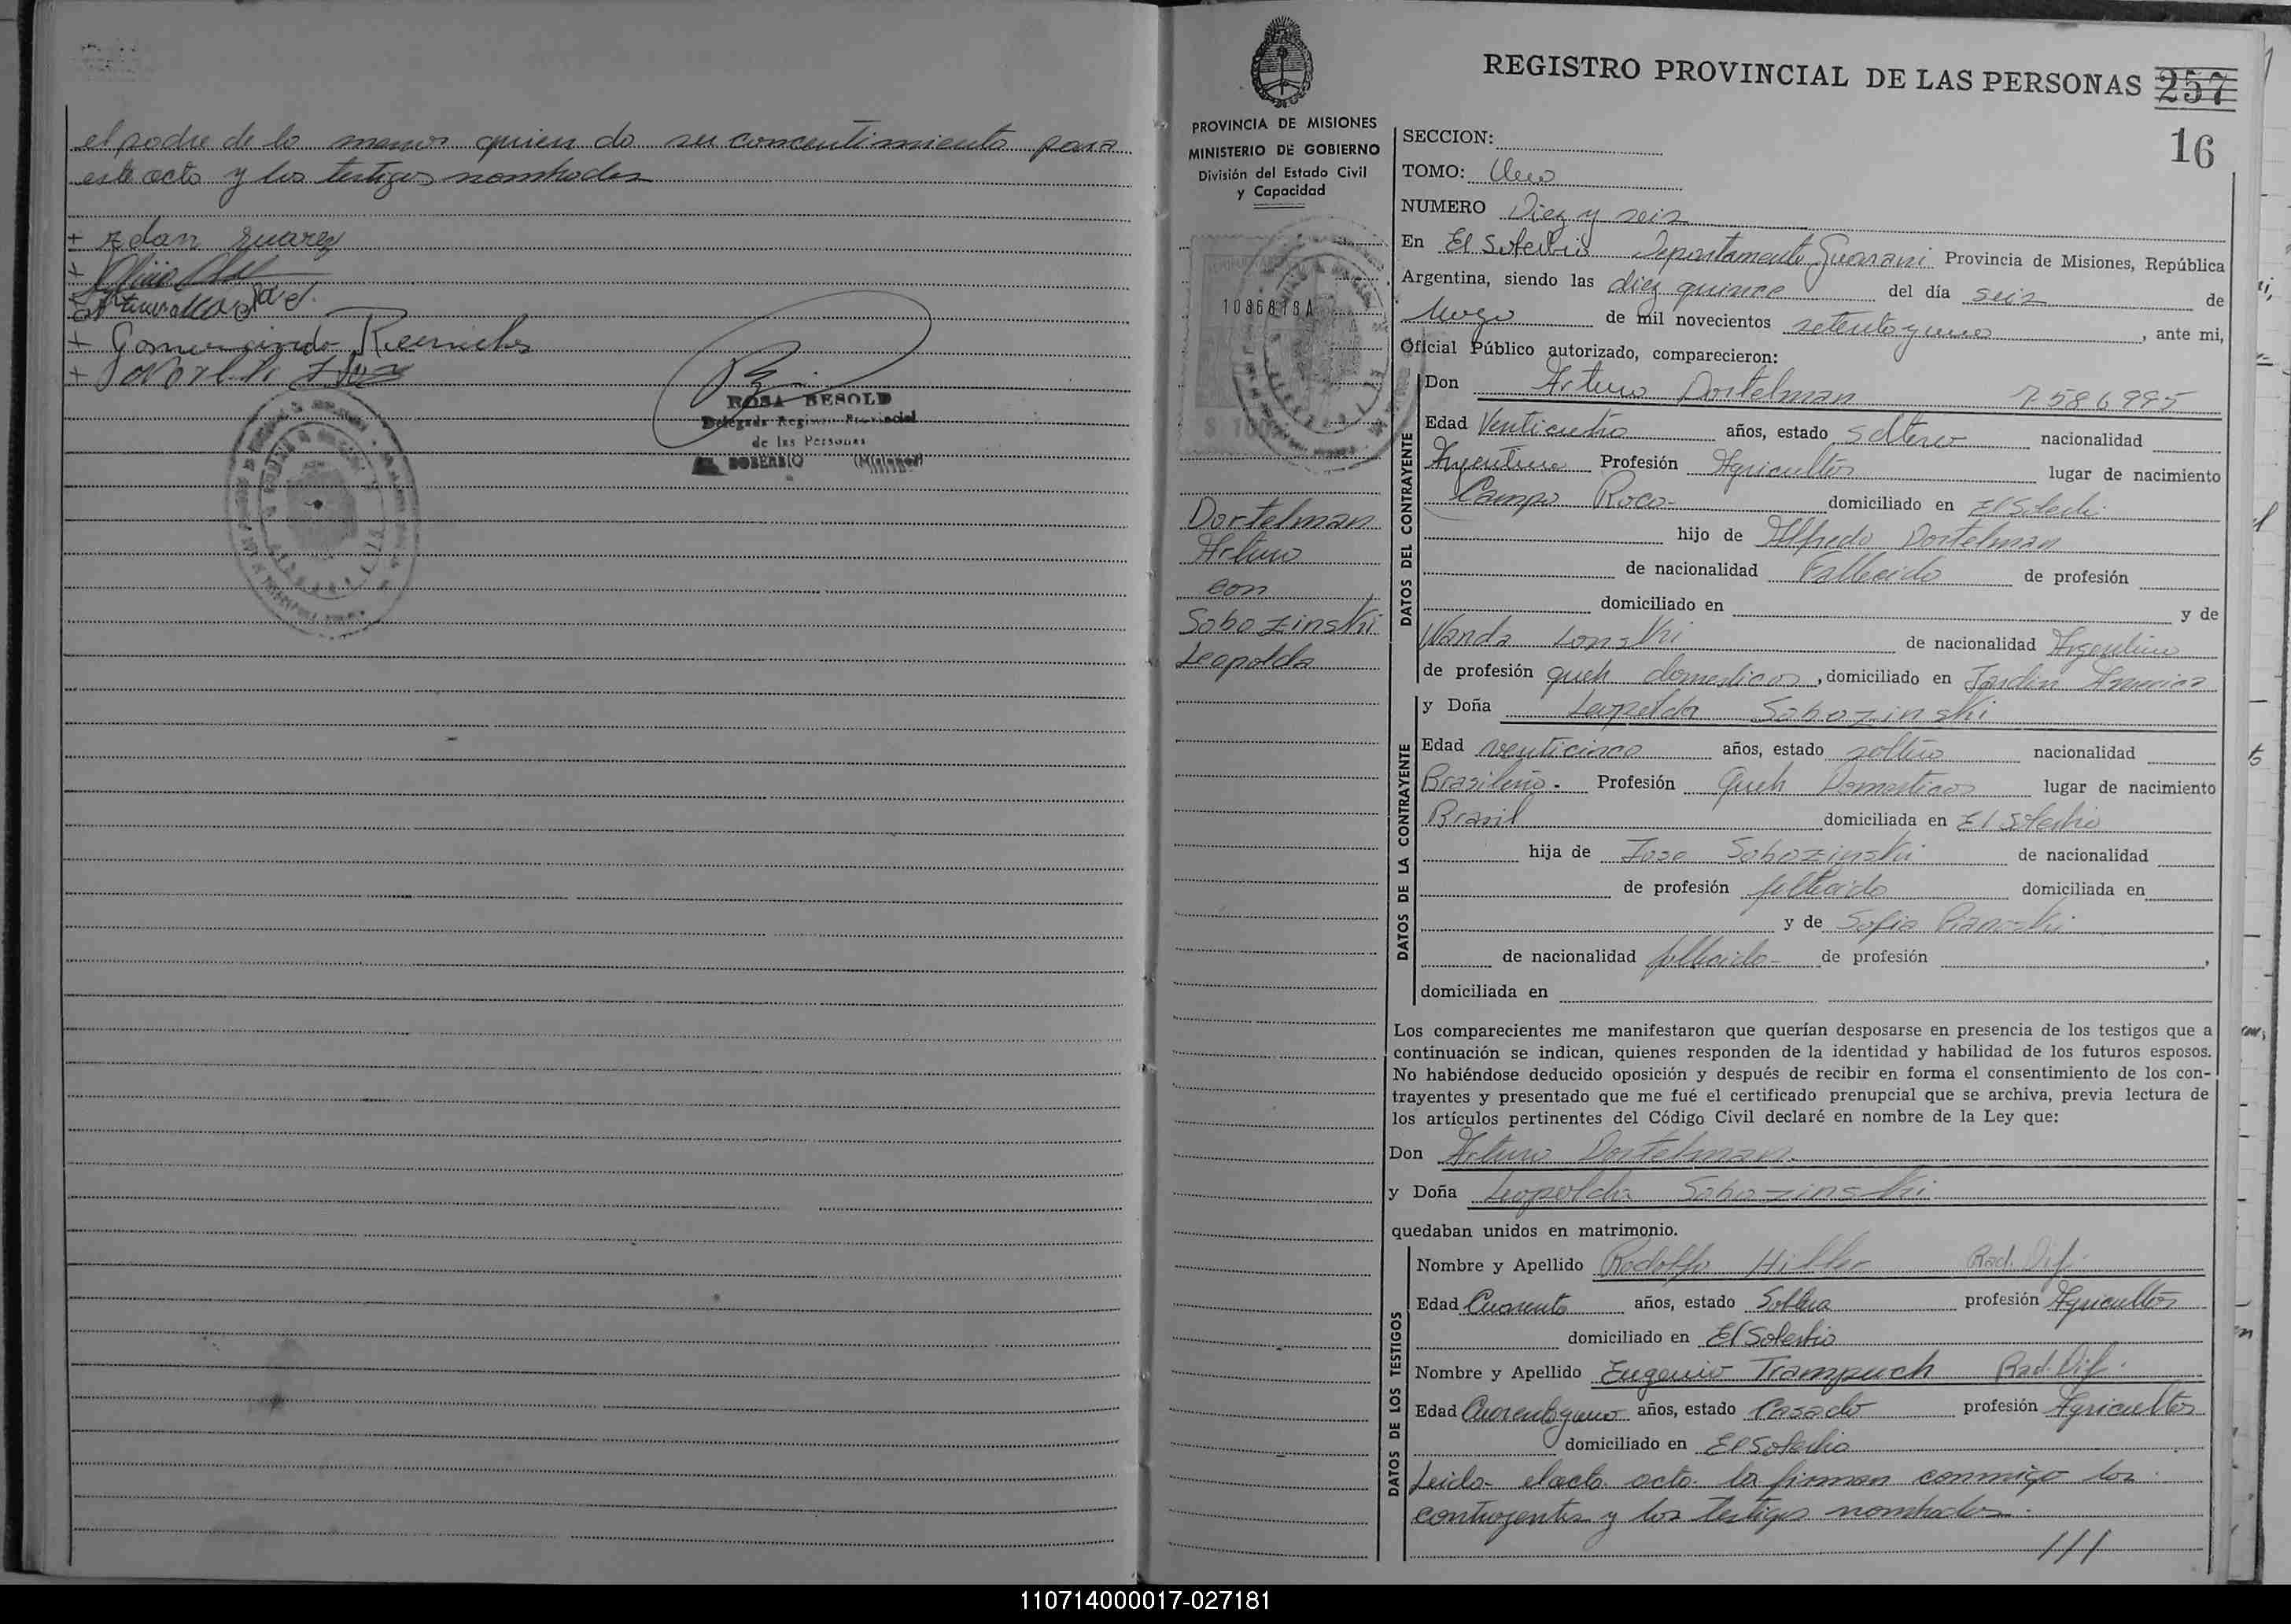 el padre de la menor quien da su concentimiento para
este acto y los testigos nombrados
+ Adan Suarez
+
+
+ Gomercindo
+
ROSA BESOLD
Delegada Registro Provincial
de las Personas
EL SOBERBIO (Misiones)
PROVINCIA DE MISIONES
MINISTERIO DE GOBIERNO
División del Estado Civil
y Capacidad
1086818A
$ 100
Dortelman
Arturo
con
Sobozinski
Leopolda
REGISTRO PROVINCIAL DE LAS PERSONAS 257
16
SECCION:
TOMO: Uno
NUMERO Diez y seis
En El Soberbio Departamento Guarani Provincia de Misiones, República
Argentina, siendo las diez quince del día seis de
Mayo de mil novecientos setenta y uno, ante mi,
Oficial Público autorizado, comparecieron:
DATOS DEL CONTRAYENTE
Don Arturo Dortelman 7.586995
Edad Venticuatro años, estado Soltero nacionalidad
Argentina Profesión Agricultor lugar de nacimiento
Campo Roca- domiciliado en El Soberbio
hijo de Alfredo Dortelman
de nacionalidad Fallecido de profesión
domiciliado en y de
Wanda Lonski de nacionalidad Argentina
de profesión queh domesticos, domiciliado en Jardin America
DATOS DE LA CONTRAYENTE
y Doña Leopolda Sobozinski
Edad venticinco años, estado soltera nacionalidad
Brasileña- Profesión Queh Domesticos lugar de nacimiento
Brasil domiciliada en El Soberbio
hija de Jose Sobozinski de nacionalidad
de profesión fallecido domiciliada en
y de Sofia
de nacionalidad fallecida- de profesión ,
domiciliada en
Los comparecientes me manifestaron que querían desposarse en presencia de los testigos que a
continuación se indican, quienes responden de la identidad y habilidad de los futuros esposos.
No habiéndose deducido oposición y después de recibir en forma el consentimiento de los con-
trayentes y presentado que me fué el certificado prenupcial que se archiva, previa lectura de
los artículos pertinentes del Código Civil declaré en nombre de la Ley que:
Don Arturo Dortelman.
y Doña Leopolda Sobozinski
quedaban unidos en matrimonio.
DATOS DE LOS TESTIGOS
Nombre y Apellido Rodolfo Hiller Rad. Dif.
Edad Cuarenta años, estado Soltera profesión Agricultor
domiciliado en El Soberbio
Nombre y Apellido Eugenio Trampuch Rad. Dif.
Edad Cuarenta y uno años, estado Casado profesión Agricultor
domiciliado en El Soberbio
Leida- el acta acta. la firman conmigo los
contrayentes y los testigos nombrados.
///
110714000017-027181